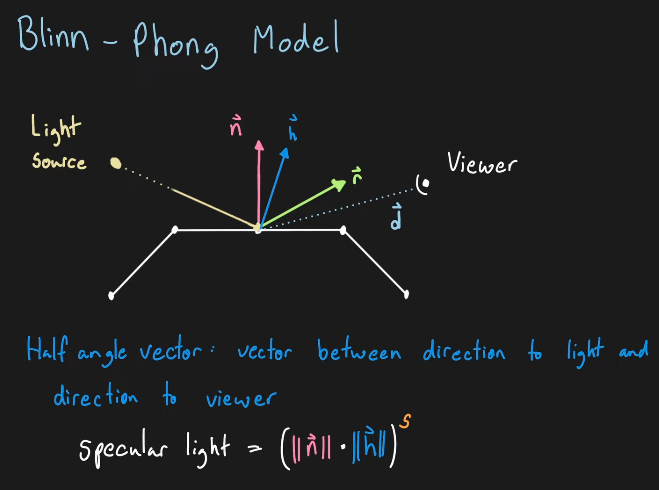 Blinn - Phong Model
Light
source
n⃗
h⃗
r⃗
Viewer
d⃗
Half angle vector: vector between direction to light and
direction to viewer
specular light = (||n⃗|| · ||h⃗||)ˢ